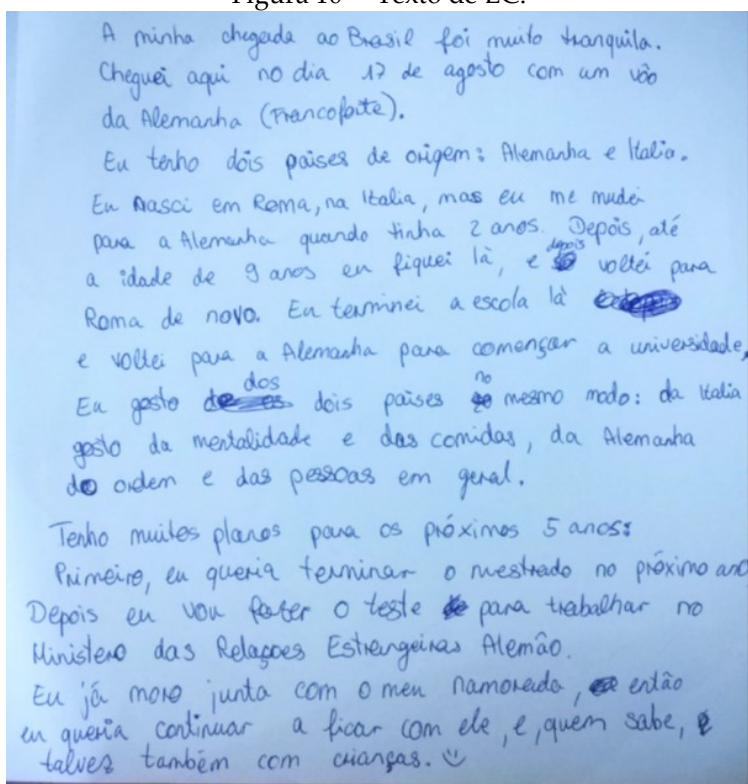 Figura 10 – Texto de EC.
A minha chegada ao Brasil foi muito tranquila.
Cheguei aqui no dia 17 de agosto com um vôo
da Alemanha (Francoforte).
Eu tenho dois paises de origem: Alemanha e Italia.
Eu nasci em Roma, na Italia, mas eu me mudei
para a Alemanha quando tinha 2 anos. Depois, até
a idade de 9 anos eu fiquei là, e depois voltei para
Roma de novo. Eu terminei a escola là
e voltei para a Alemanha para començar a universidade,
Eu gosto dos dois países no mesmo modo: da Italia
gosto da mentalidade e das comidas, da Alemanha
do ordem e das pessoas em geral.
Tenho muitos planos para os próximos 5 anos:
Primeiro, eu queria terminar o mestrado no próximo ano
Depois eu vou fazer o teste para trabalhar no
Ministero das Relaçoes Estrangeiras Alemão.
Eu já moro junta com o meu namorado, então
eu queria continuar a ficar com ele, e, quem sabe,
talvez também com crianças. ☺